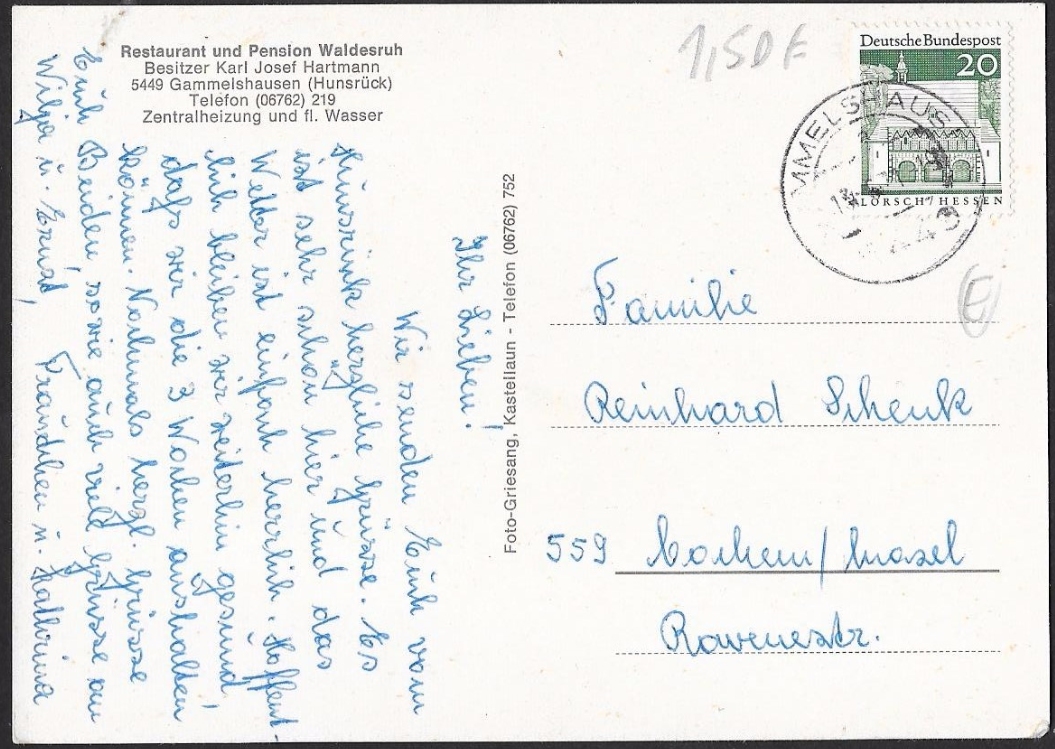 Restaurant und Pension Waldesruh
Besitzer Karl Josef Hartmann
5449 Gammelshausen (Hunsrück)
Telefon (06762) 219
Zentralheizung und fl. Wasser
Ihr Lieben!
Wir senden Euch vom
Hunsrück herzliche Grüsse. Es
ist sehr schön hier und das
Wetter ist einfach herrlich. Hoffent-
lich bleiben wir weiterhin gesund,
daß wir die 3 Wochen aushalten
können. Nochmals herzl. Grüsse
Euch Beiden sowie auch viele Grüsse an
Wilja u. Ernst, Fräudchen u. Kathrina
Foto-Griesang, Kastellaun - Telefon (06762) 752
1,50 E
Deutsche Bundespost
20
LORSCH/HESSEN
MMELSHAUS
E
Familie
Reinhard Schenk
559 Cochem/Mosel
Ravenestr.